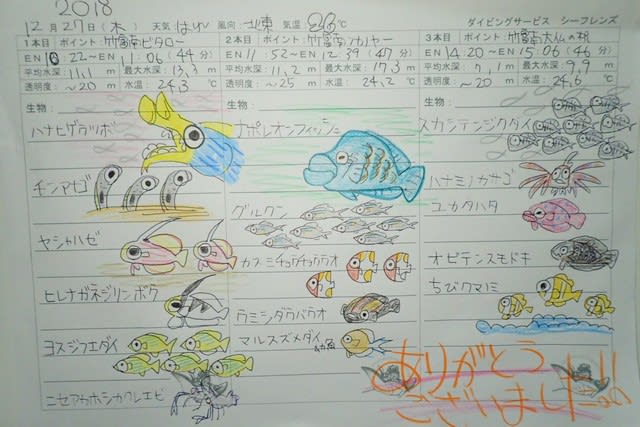 2018
12月27日(木) 天気 はれ 風向：北東 気温 26℃ ダイビングサービス シーフレンズ
1本目 ポイント：竹富南ピタロー
EN 10:22～11:06(44分)
平均水深：11.1m 最大水深：13.3m
透明度：～20m 水温：24.3℃
生物：
ハナヒゲウツボ
チンアナゴ
ヤシャハゼ
ヒレナガネジリンボウ
ヨスジフエダイ
ニセアカホシカクレエビ
2本目 ポイント：竹富南
EN 11:52～12:39(47分)
平均水深：11.2m 最大水深：17.3m
透明度：～25m 水温：24.2℃
生物：
ナポレオンフィッシュ
グルクン
カスミチョウチョウウオ
ウミシダウバウオ
マルスズメダイ 幼魚
3本目 ポイント：竹富南大仏の
EN 14:20～15:06(46分)
平均水深：7.1m 最大水深 9.9m
透明度：～20m 水温：24.6℃
生物：
スカシテンジクダイ
ハナミノカサゴ
ユカタハタ
オビテンスモドキ
ちびクマノミ
ありがとう
ございました!!